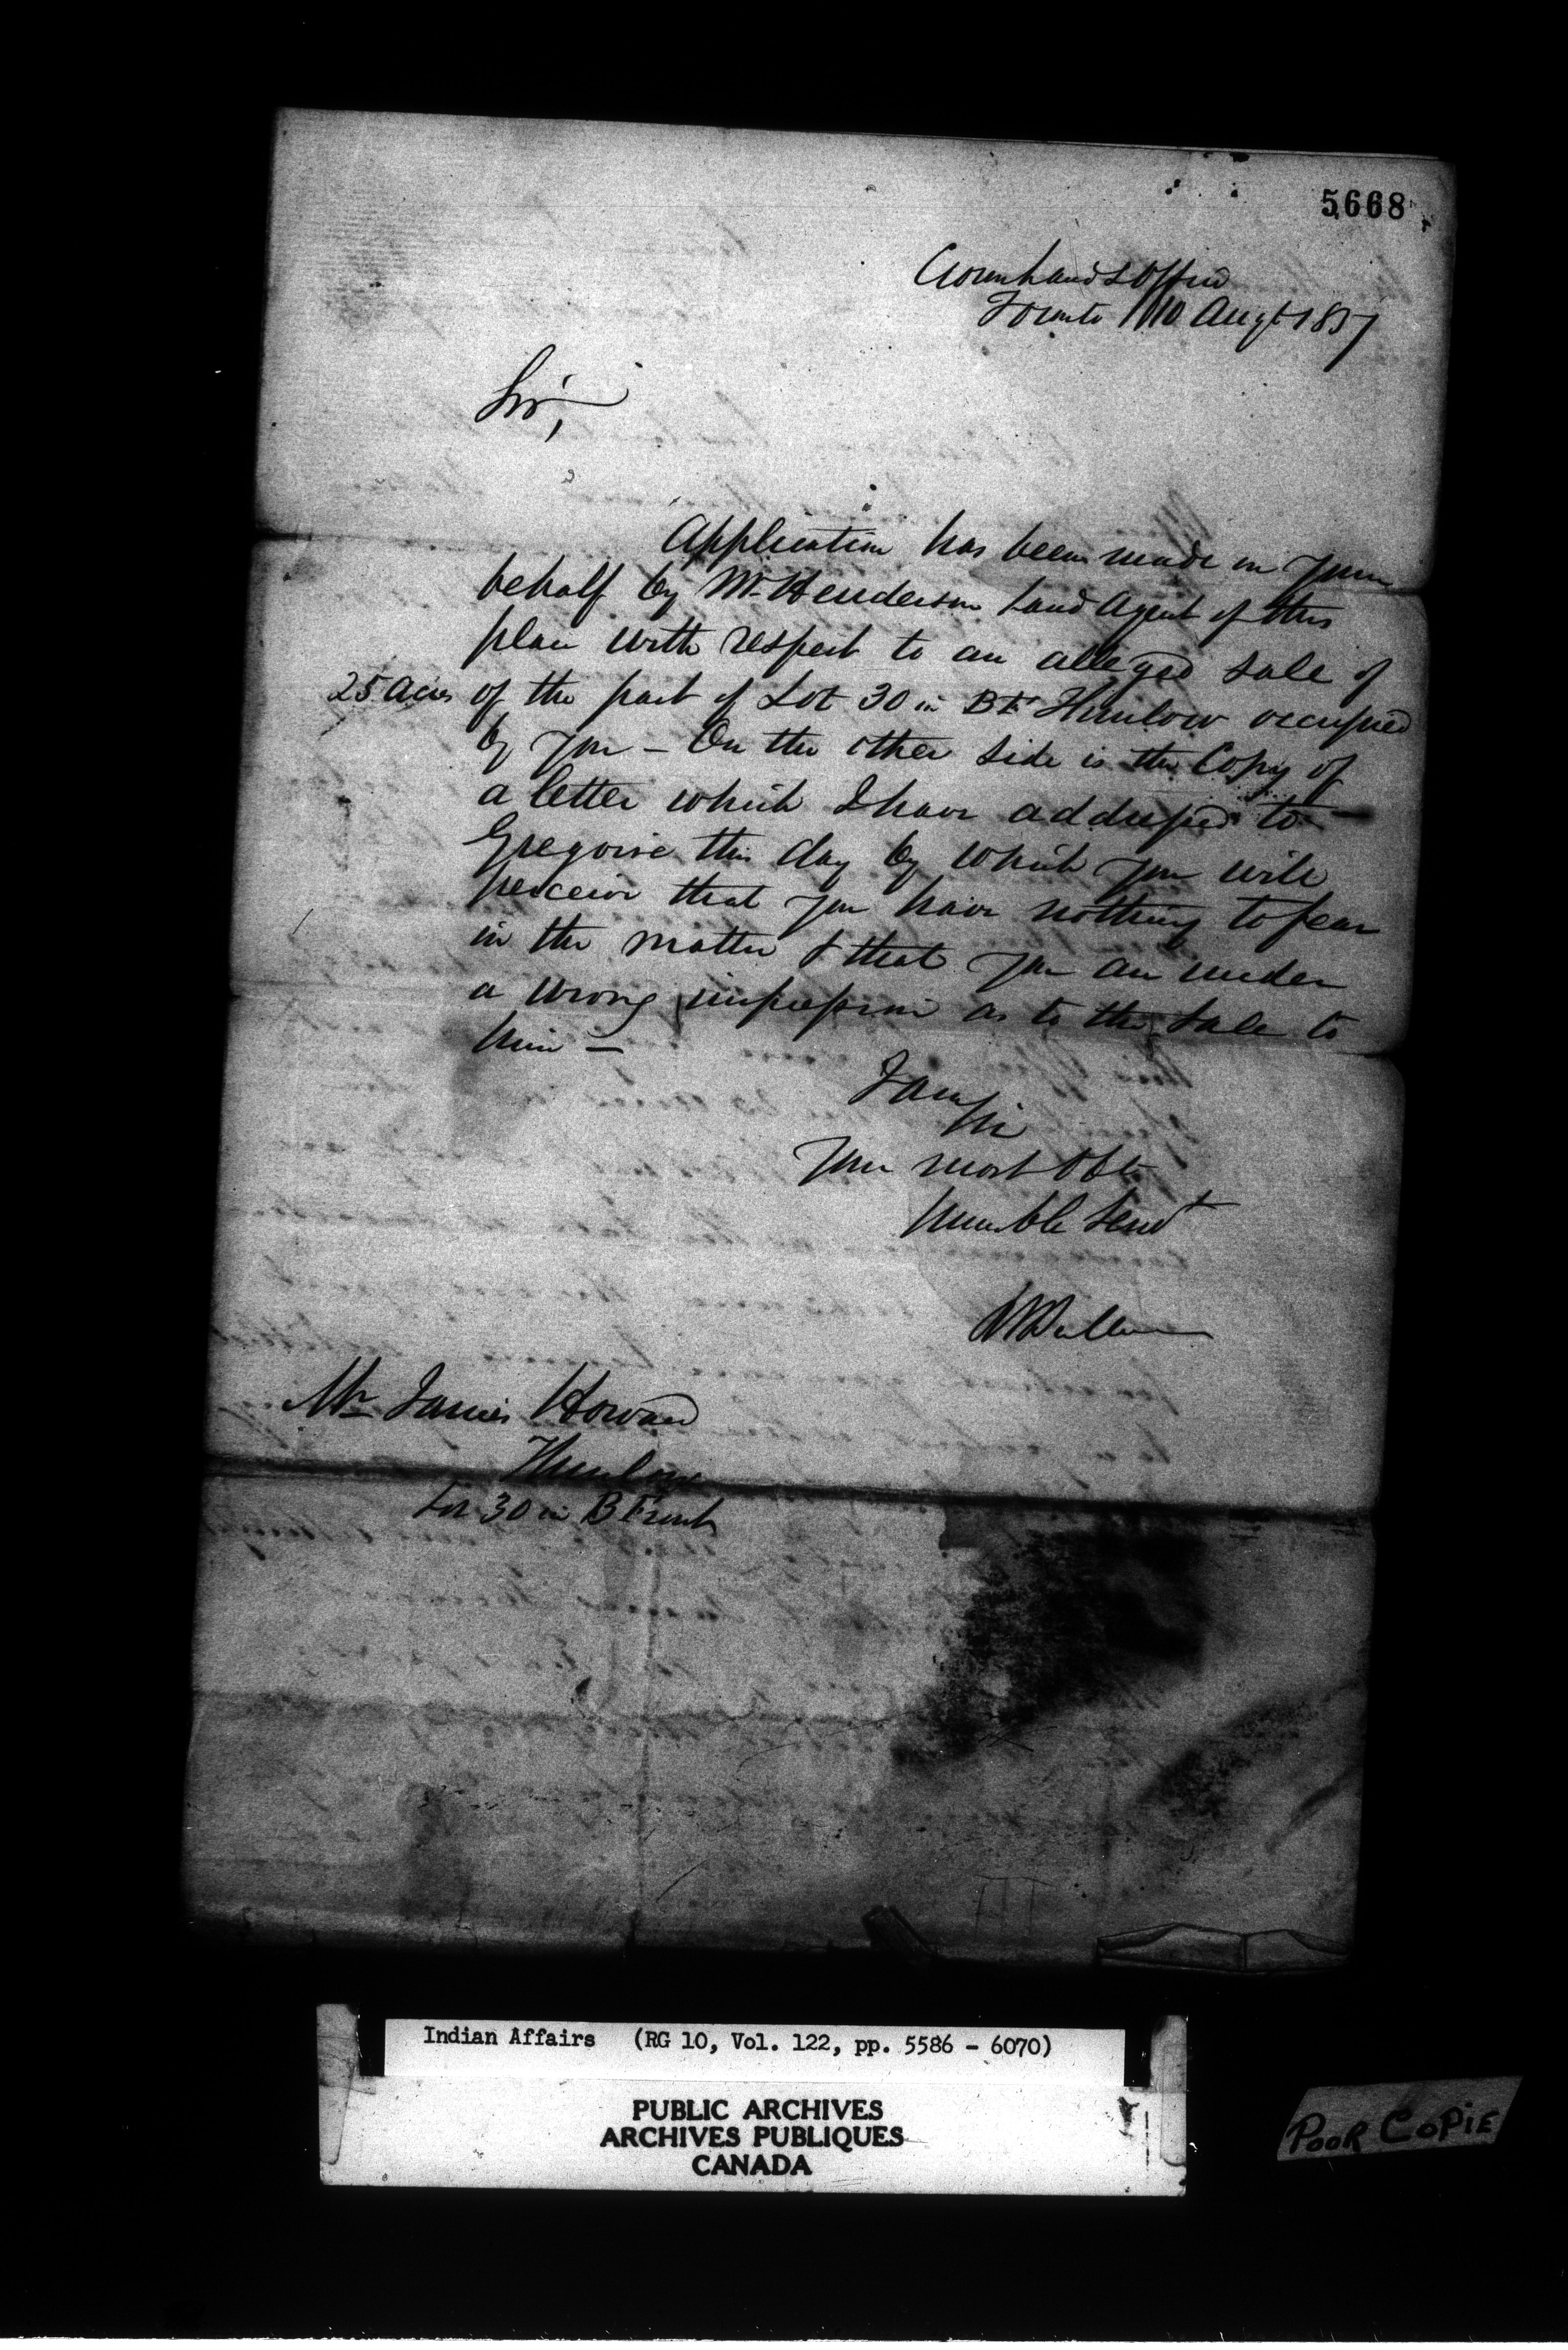 5668
Crown Lands Office
Toronto 10 Augt 1837
Sir,
Application has been made in your
behalf by Mr Henderson Land Agent of this
place with respect to an alleged sale of
25 acres of the part of Lot 30 in BF Thurlow occupied
by you — On the other side is the Copy of
a letter which I have addressed to —
Gregoire this day by which you will
perceive that you have nothing to fear
in the matter & that you are under
a wrong impression as to the Sale to
him —
I am
Sir
Your most Obt
humble Servt
Mr James Howard
Thurlow
Lot 30 in B Front
Indian Affairs (RG 10, Vol. 122, pp. 5586 - 6070)
PUBLIC ARCHIVES
ARCHIVES PUBLIQUES
CANADA
POOR COPIE